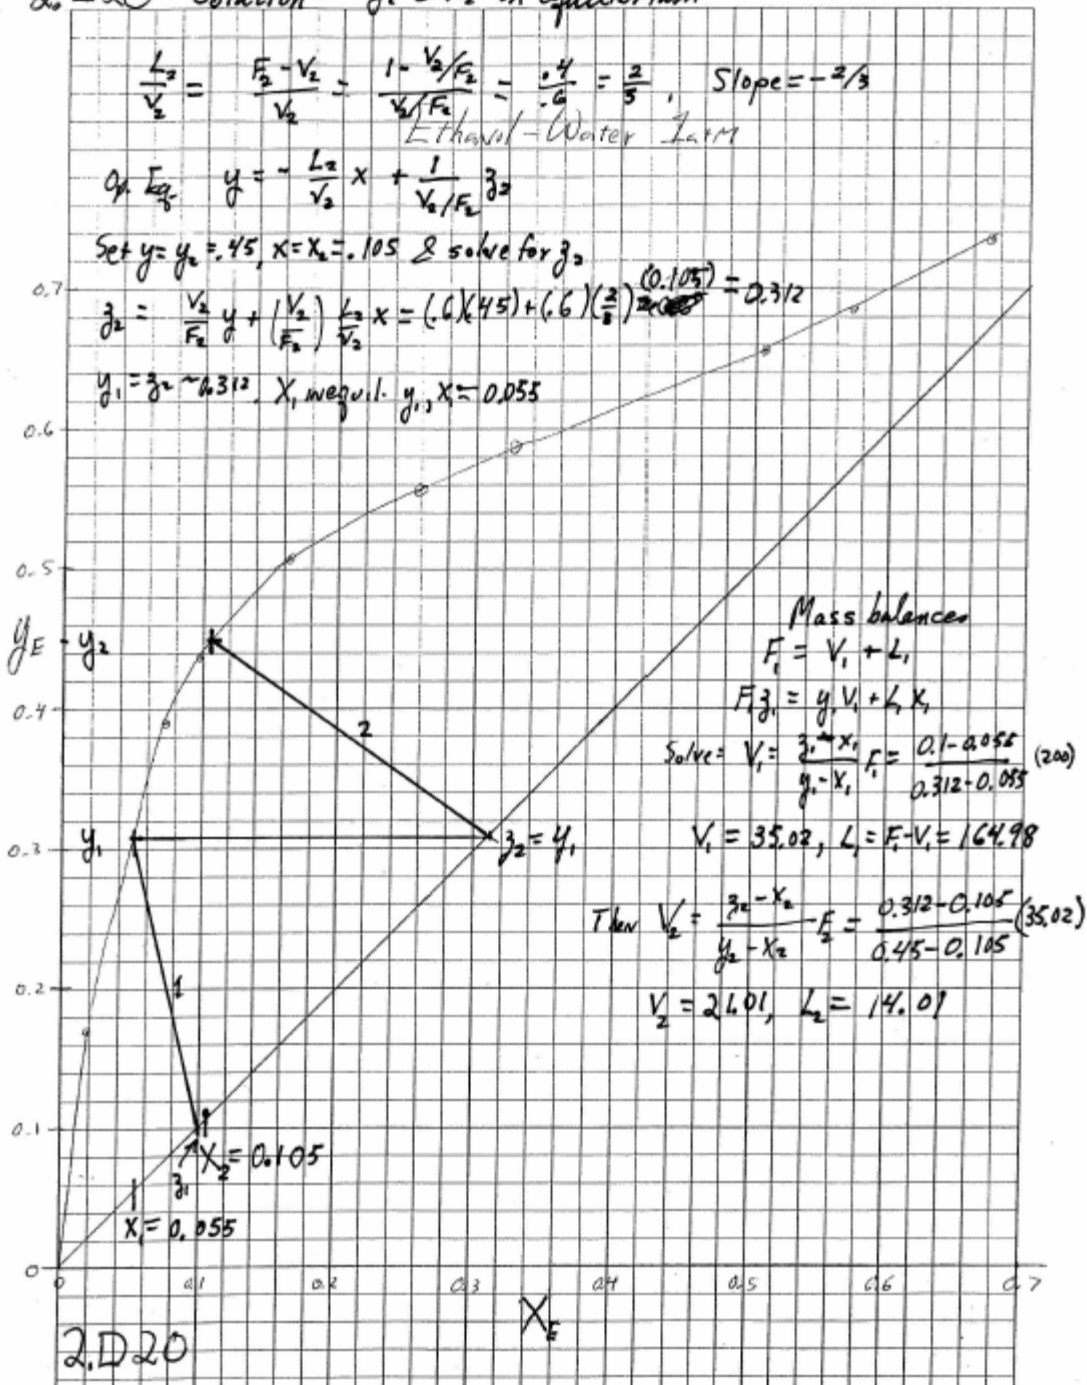 Solution
in equilibrium
L₂/V₂ = (F₂ - V₂)/V₂ = (1 - V₂/F₂)/(V₂/F₂) = .4/.6 = 2/3, Slope = -2/3
Ethanol-Water 1atm
Op. Eq. y = - L₂/V₂ x + 1/(V₂/F₂) z₂
Set y = y₂ = .45, x = x₂ = .105 & solve for z₂
z₂ = V₂/F₂ y + (V₂/F₂) L₂/V₂ x = (.6)(.45) + (.6)(2/3)(0.105) = 0.312
y₁ = z₂ ~ 0.312. X₁ in equil. y₁, x₁ = 0.055
0.7
0.6
0.5
y_E
y₂
0.4
2
y₁
z₂ = y₁
0.3
1
0.2
0.1
X₂ = 0.105
z₁
X₁ = 0.055
0
Mass balances
F₁ = V₁ + L₁
F₁z₁ = y₁V₁ + L₁X₁
Solve = V₁ = (z₁ - x₁)/(y₁ - x₁) F₁ = (0.1 - 0.055)/(0.312 - 0.055) (200)
V₁ = 35.02, L₁ = F₁ - V₁ = 164.98
Then V₂ = (z₂ - x₂)/(y₂ - x₂) F₂ = (0.312 - 0.105)/(0.45 - 0.105) (35.02)
V₂ = 21.01, L₂ = 14.01
0 0.1 0.2 0.3 0.4 0.5 0.6 0.7
X_E
2.D20